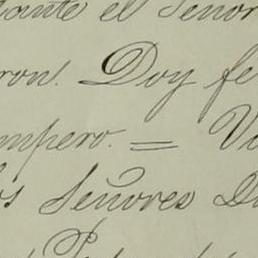 tante el Señor
ron. Doy fe
mpero. = V
os Señores D